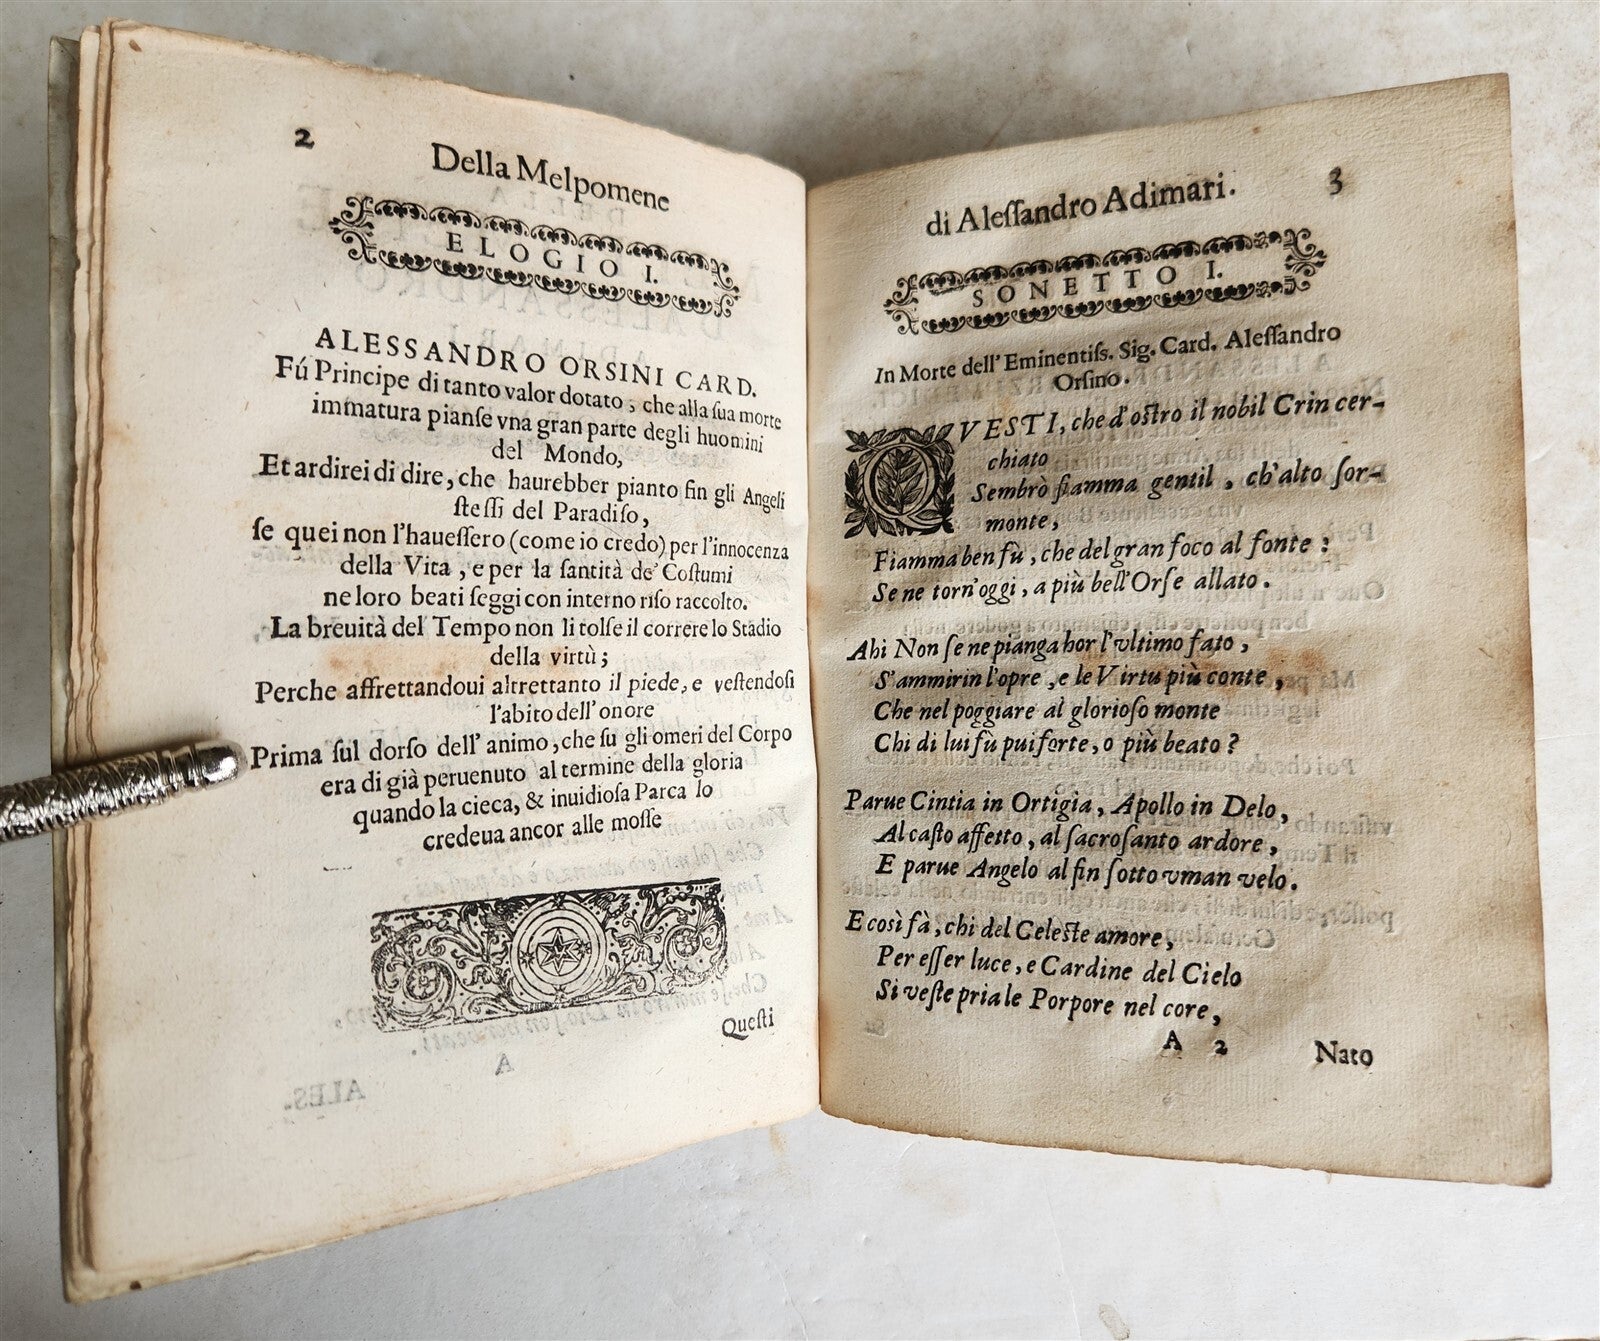 2
Della Melpomene
ELOGIO I.
ALESSANDRO ORSINI CARD.
Fú Principe di tanto valor dotato, che alla ſua morte
immatura pianſe vna gran parte degli huomini
del Mondo,
Et ardirei di dire, che haurebber pianto fin gli Angeli
ſteſſi del Paradiſo,
ſe quei non l'haueſſero (come io credo) per l'innocenza
della Vita, e per la ſantità de' Coſtumi
ne loro beati ſeggi con interno riſo raccolto.
La breuità del Tempo non li tolſe il correre lo Stadio
della virtù;
Perche affrettandoui altrettanto il piede, e veſtendoſi
l'abito dell'onore
Prima ſul dorſo dell'animo, che ſu gli omeri del Corpo
era di già peruenuto al termine della gloria
quando la cieca, & inuidioſa Parca lo
credeua ancor alle moſſe
Queſti
di Aleſſandro Adimari.
3
SONETTO I.
In Morte dell'Eminentiſs. Sig. Card. Aleſſandro
Orſino.
QVESTI, che d'oſtro il nobil Crin cer-
chiato
Sembrò fiamma gentil, ch'alto ſor-
monte,
Fiamma ben fù, che del gran foco al fonte:
Se ne torn'oggi, a più bell'Orſe allato.
Ahi Non ſe ne pianga hor l'vltimo fato,
S'ammirin l'opre, e le Virtu più conte,
Che nel poggiare al glorioſo monte
Chi di lui fù pui forte, o più beato?
Parue Cintia in Ortigia, Apollo in Delo,
Al caſto affetto, al ſacroſanto ardore,
E parue Angelo al fin ſotto vman velo.
E così fà, chi del Celeſte amore,
Per eſſer luce, e Cardine del Cielo
Si veſte pria le Porpore nel core,
A 2
Nato